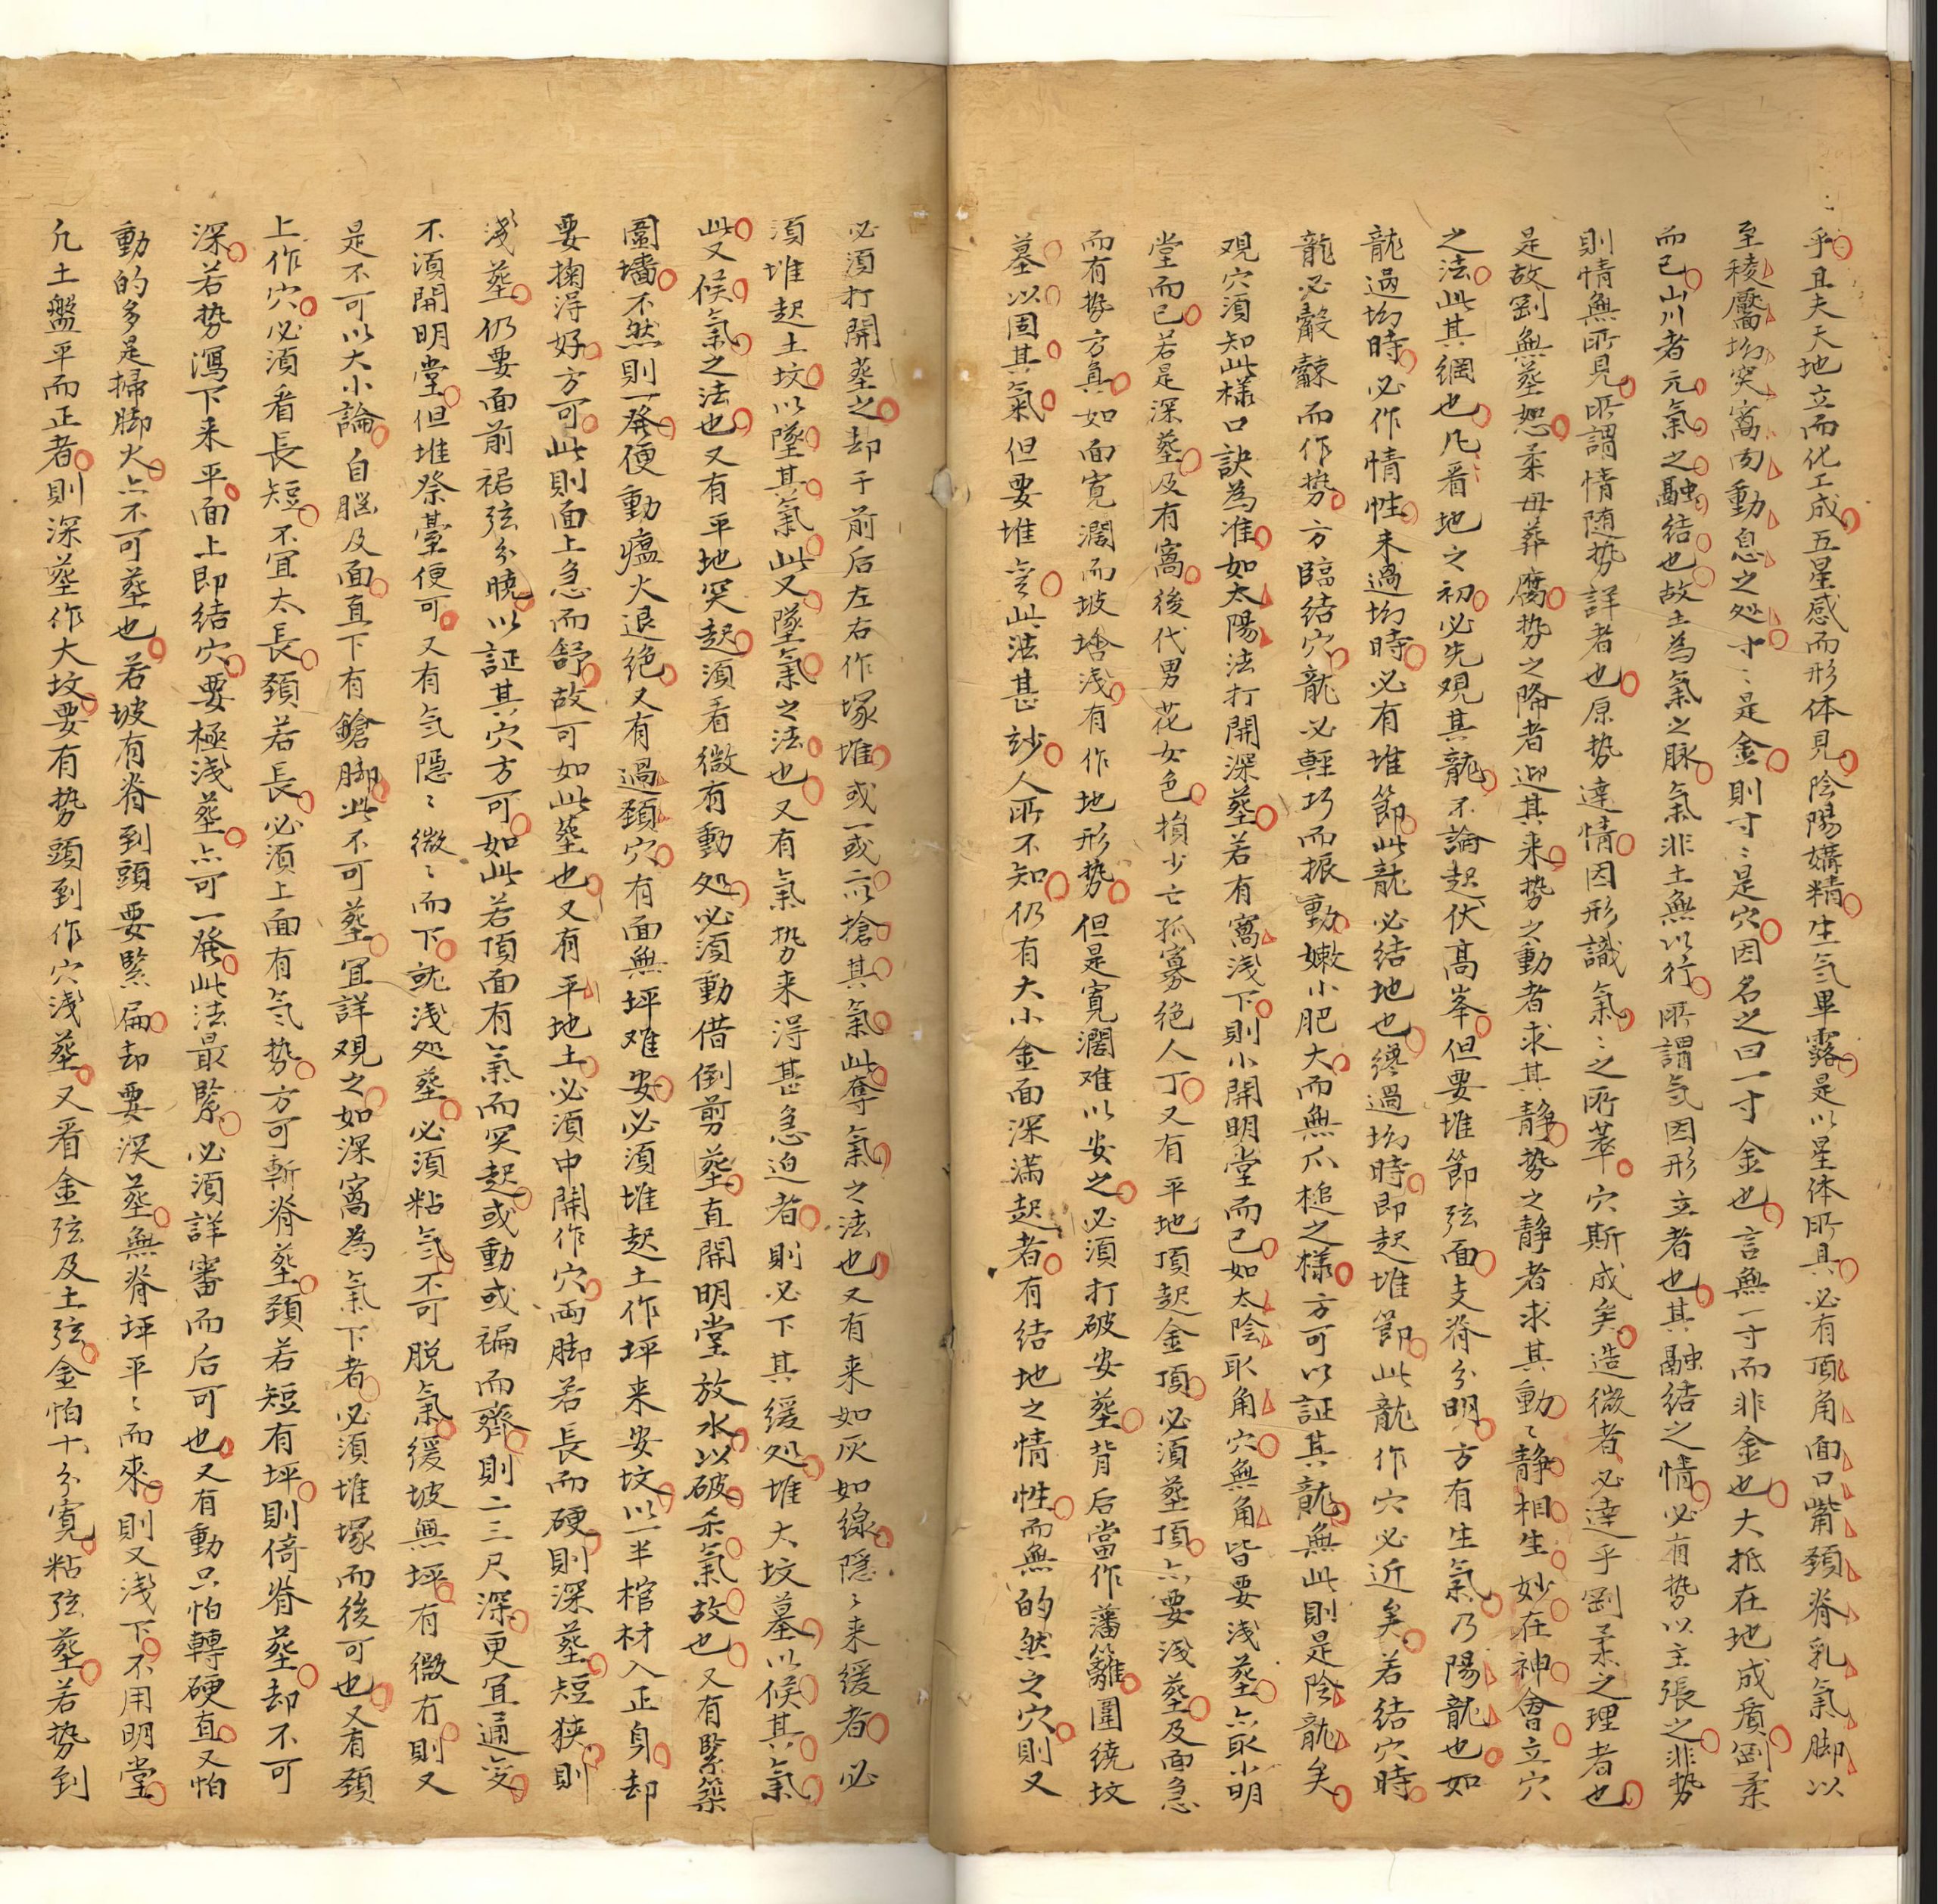 乎且夫天地立而化工成五星感而形体見陰陽媾精生气畢露是以星体所具必有頂角面口嘴頚脊乳氣脚以
至稜靨坳突窩凹動息之処寸〻是金則寸〻是穴因名之曰一寸金也言無一寸而非金也大抵在地成質剛柔
而已山川者元氣之融結也故土為氣之脉氣非土無以行所謂气因形立者也其融結之情必有势以主張之非势
則情無所見所謂情随势詳者也原势達情因形識氣〻之所萃穴斯成矣造微者必達乎剛柔之理者也
是故剛無塟恕柔毋葬腐势之降者迎其来势之動者求其静势之静者求其動〻静相生妙在神會立穴
之法此其網也凡看地之初必先观其龍不論起伏高峯但要堆節弦面支脊分明方有生氣乃陽龍也如
龍過坳時必作情性未過坳時必有堆節此龍必結地也纔過坳時即起堆節此龍作穴必近矣若結穴時
龍必觳觫而作势方臨結穴龍必輕巧而振動嫩小肥大而無爪槌之樣方可以証其龍無此則是陰龍矣
观穴須知此樣口訣為准如太陽法打開深塟若有窩浅下則小開明堂而已如太陰取角穴無角皆要浅塟亦取小明
堂而已若是深塟及有窩後代男花女色損少亡孤寡绝人丁又有平地頂起金頂必須塟頂亦要浅塟及面急
而有势方負如面寛濶而坡㙮浅有作地形势但是寛濶难以安之必須打破安塟背后當作藩籬圍繞坟
墓以固其氣但要堆㝵此法甚玅人所不知仍有大小金面深滿起者有结地之情性而無的然之穴則又
必須打開塟之却于前后左右作塚堆或一或二以搶其氣此奪氣之法也又有来如灰如線隱〻来緩者必
須堆起土坟以墜其氣此又墜氣之法也又有氣势来淂甚急迫者則必下其緩処堆大坟墓以候其氣
此又候氣之法也又有平地突起須看微有動処必須動借倒剪塟直開明堂放水以破杀氣故也又有緊築
圍墻不然則一発便動瘟火退绝又有過頚穴有面無坪难安必須堆起土作坪来安坟以一半棺材入正身却
要掬淂好方可此則面上急而舒故可如此塟也又有平地土必須中開作穴両脚若長而硬則深塟短狭則
浅塟仍要面前裙弦分曉以証其穴方可如此若頂面有氣而突起或動或褊而齊則二三尺深更宜通变
不須開明堂但堆祭臺便可又有气隱〻微〻而下就浅処塟必須粘气不可脱氣緩坡無坪有微冇則又
是不可以大小論自脳及面直下有鎗脚此不可塟宜詳观之如深窩為氣下者必須堆塚而後可也又有頚
上作穴必須看長短不宜太長頚若長必須上面有气势方可斬脊塟頚若短有坪則倚脊塟却不可
深若势瀉下来平面上即结穴要極浅塟亦可一発此法最緊必須詳審而后可也又有動只怕轉硬直又怕
動的多是掃脚火亦不可塟也若坡有脊到頭要緊扁却要深塟無脊坪平〻而來則又浅下不用明堂
凢土盤平而正者則深塟作大坟要有势頭到作穴浅塟又看金弦及土弦金怕十分寛粘弦塟若势到